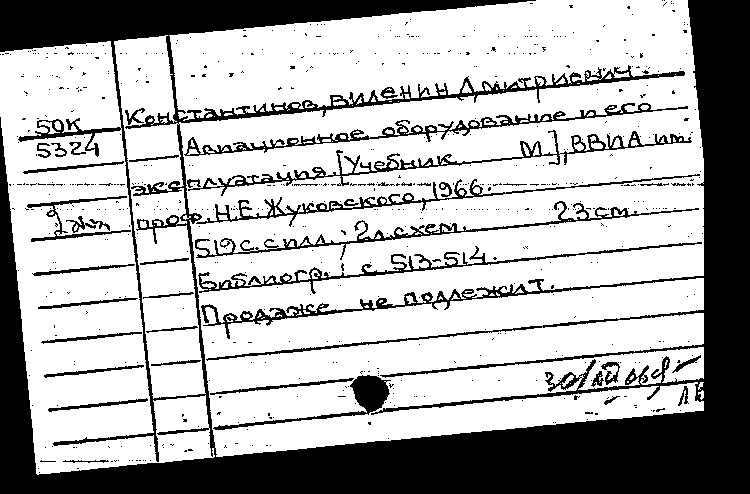 50К Константинов, Виленин Дмитриевич.
5324 Авиационное оборудование и его
эксплуатация. [Учебник М], ВВИА им.
2 экз проф. Н.Е. Жуковского, 1966.
519 с. с илл.; 2 л. схем. 23 см.
Библиогр.: с. 513-514.
Продаже не подлежит.